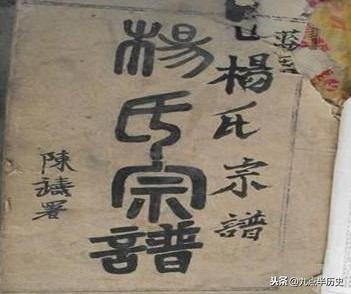 楊氏宗譜
楊氏宗譜
陳署
头条 @九点半历史